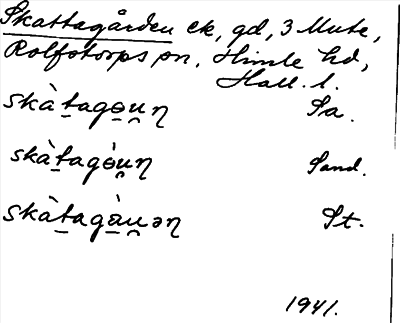 Skattagården ek, gd, 3 Mute,
Rolfstorps sn, Himle hd,
Hall. l.
skàt̠agɵ̠u̯n̥ Sa.
skàt̠agɵ̀u̯n̥ Sand.
skàt̠agà̠u̯ən̥ St.
1941.